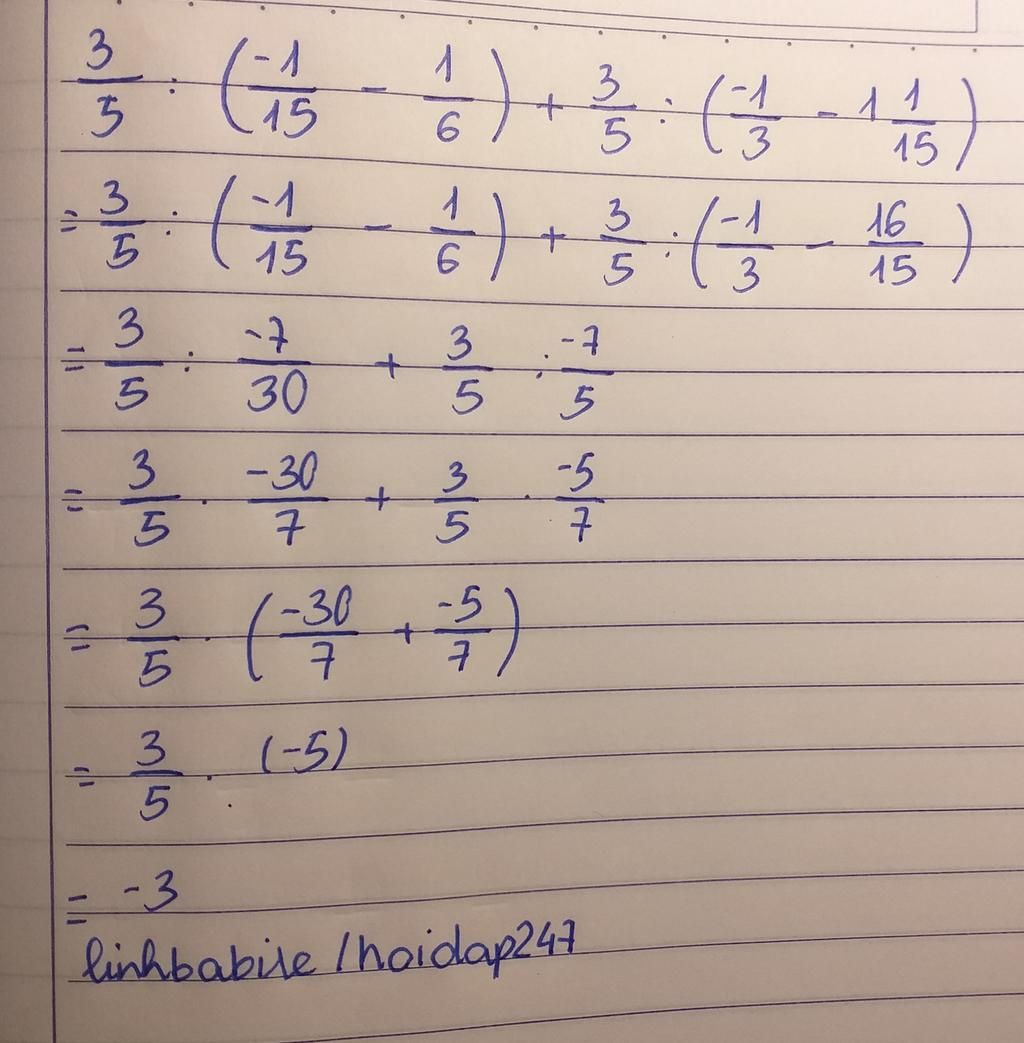 3/5 : (-1/15 - 1/6) + 3/5 : (-1/3 - 1 1/15)
= 3/5 : (-1/15 - 1/6) + 3/5 : (-1/3 - 16/15)
= 3/5 : -7/30 + 3/5 : -7/5
= 3/5 . -30/7 + 3/5 . -5/7
= 3/5 . (-30/7 + -5/7)
= 3/5 . (-5)
= -3
linhbabile /hoidap247